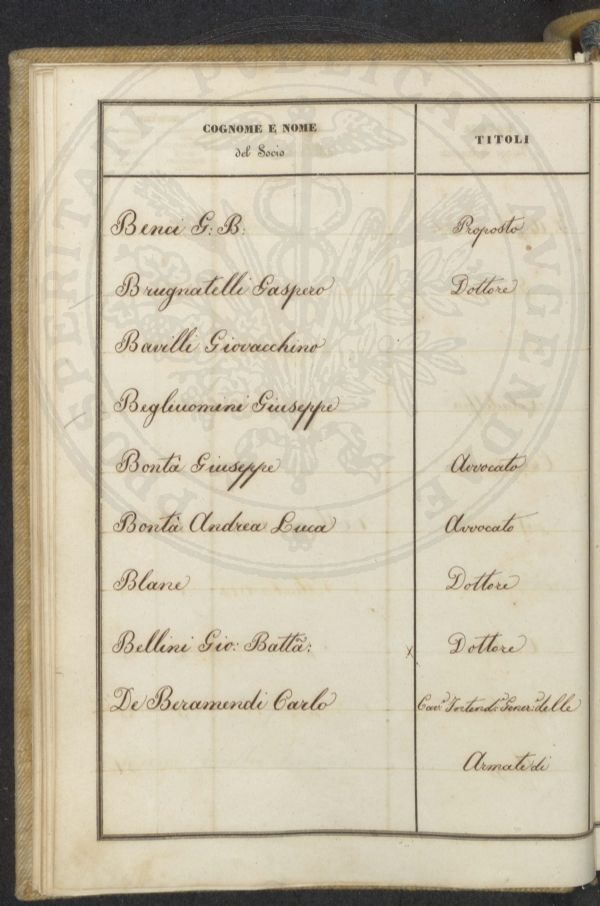 COGNOME E NOME
del Socio
TITOLI
Benci G: B:
Proposto
Brugnatelli Gaspero
Dottore
Bavilli Giovacchino
Begliuomini Giuseppe
Bontà Giuseppe
Avvocato
Bontà Andrea Luca
Avvocato
Blanc
Dottore
Bellini Gio: Batta:
x Dottore
De Beramendi Carlo
Cav.e Intend.e Gener.e delle
Armate di
PROSPERITATI PUBLICAE AUGENDAE